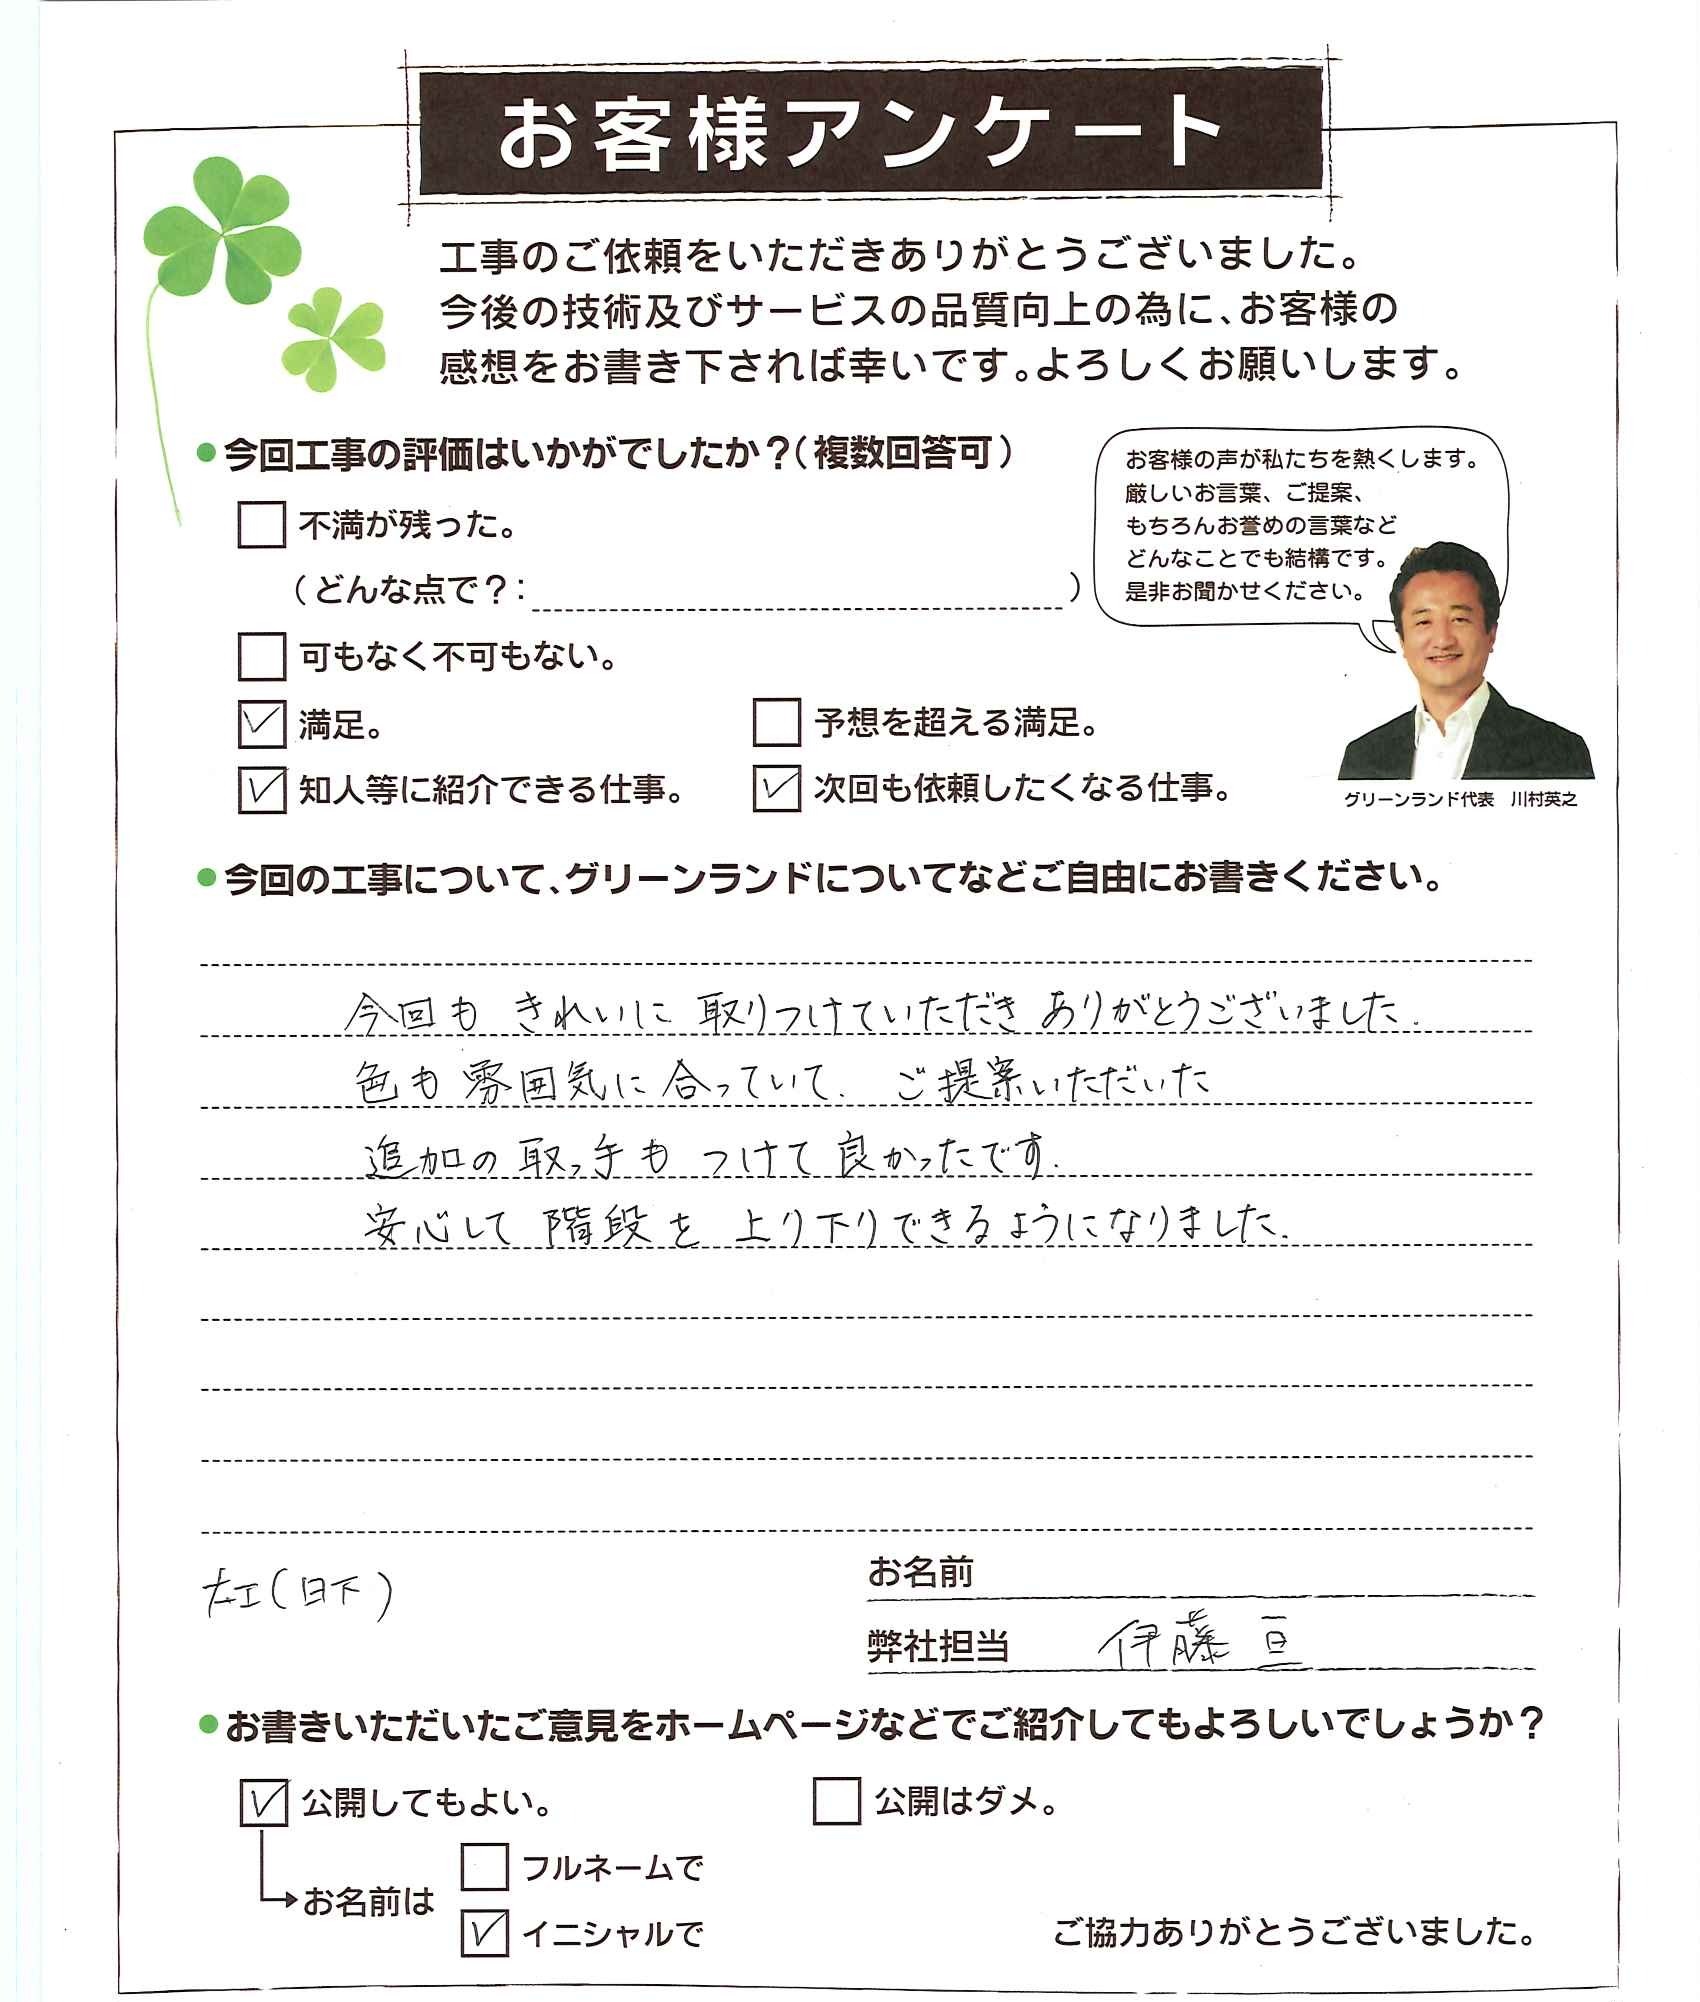 お客様アンケート
工事のご依頼をいただきありがとうございました。
今後の技術及びサービスの品質向上の為に、お客様の
感想をお書き下されば幸いです。よろしくお願いします。
●今回工事の評価はいかがでしたか？（複数回答可）
お客様の声が私たちを熱くします。
厳しいお言葉、ご提案、
もちろんお誉めの言葉など
どんなことでも結構です。
是非お聞かせください。
不満が残った。
（どんな点で？：　）
可もなく不可もない。
満足。 予想を超える満足。
知人等に紹介できる仕事。 次回も依頼したくなる仕事。
グリーンランド代表　川村英之
●今回の工事について、グリーンランドについてなどご自由にお書きください。
今回も きれいに 取りつけていただき ありがとうございました.
色も 雰囲気に 合っていて. ご提案いただいた
追加の 取っ手も つけて 良かったです.
安心して 階段を 上り下りできるようになりました.
大工（日下）
お名前
弊社担当 伊藤 亘
●お書きいただいたご意見をホームページなどでご紹介してもよろしいでしょうか？
公開してもよい。 公開はダメ。
フルネームで
お名前は
イニシャルで
ご協力ありがとうございました。